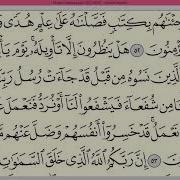 بِكِتَٰبٍ فَصَّلْنَٰهُ عَلَىٰ عِلْمٍ هُدًى
هَلْ يَنظُرُونَ إِلَّا تَأْوِيلَهُۥ يَوْمَ
ٱلَّذِينَ نَسُوهُ مِن قَبْلُ قَدْ جَآءَتْ رُسُلُ
مِن شُفَعَآءَ فَيَشْفَعُوا۟ لَنَآ أَوْ نُرَدُّ فَنَعْمَلَ
نَعْمَلُ قَدْ خَسِرُوٓا۟ أَنفُسَهُمْ وَضَلَّ عَنْهُم
٥٣ إِنَّ رَبَّكُمُ ٱللَّهُ ٱلَّذِى خَلَقَ ٱلسَّمَٰوَٰتِ